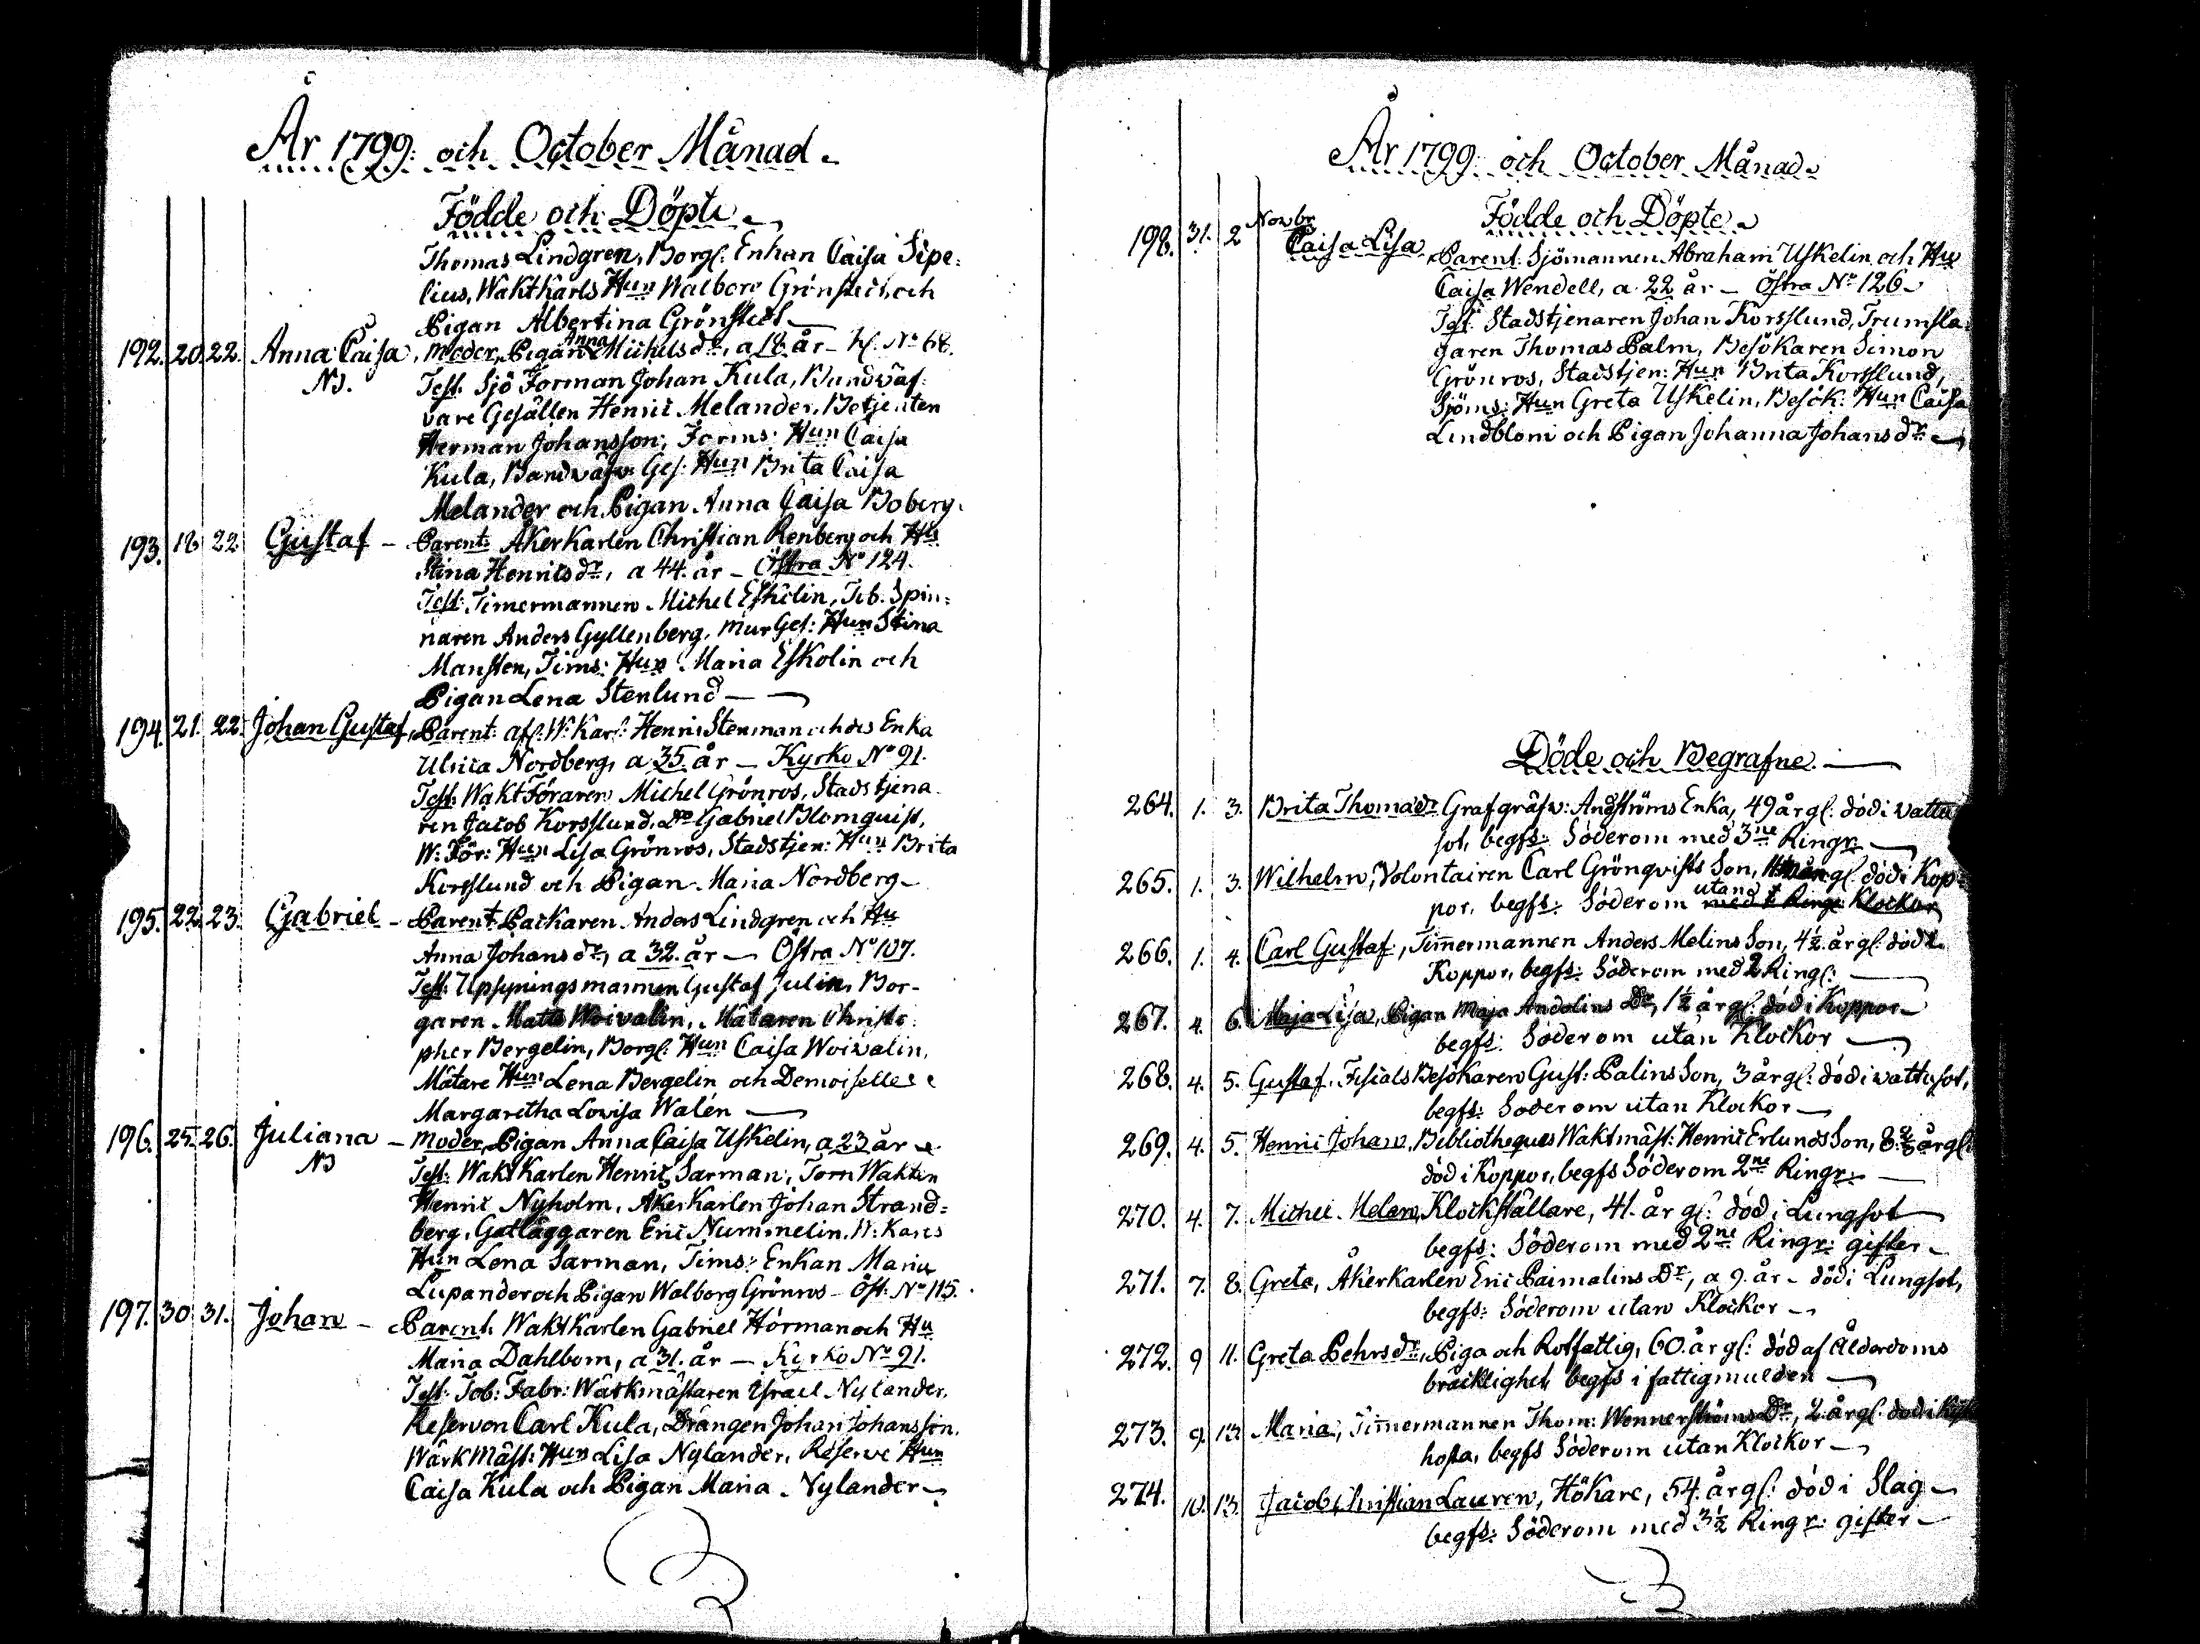 År 1799. och October Månad.
Födde och Döpte
Thomas Lindgren, Borgl: Enkan Caisa Sipe=
lius, Waktkarls Hun Walborg Grönstedt och
Pigan Albertina Grönstedt
192. 20. 22. Anna Caisa, Moder, Pigan Anna Michelsdr, a 18. år _ Kl. No 68.
NB. Test. Sjö Forman Johan Kula, Bandväf=
vare Gesällen Henric Melander, Betjenten
Herman Johansson, Forms: Hun Caisa
Kula, Bandväfv: Ges: Hun Brita Caisa
Melander och Pigan Anna Caisa Boberg.
193. 18. 22 Gustaf _ Parent: Åkerkarlen Christian Renberg och Hu
Stina Henricsdr, a 44. år _ Östra No 124.
Test: Timermannen Michel Eskelin, Tob: Spin=
naren Anders Gyllenberg, Mur Ges: Hun Stina
Mansten, Tims: Hun Maria Eskolin och
Pigan Lena Stenlund _
194. 21. 22. Johan Gustaf, Parent: afl. W: Karl: Henric Stenman och des Enka
Ulrica Nordberg, a 35. år _ Kyrko No 91.
Test: Wakt Föraren Michel Grönros, Stads tjena=
ren Jacob Korsslund, Do Gabriel Blomquist,
W: För: Hun Lisa Grönros, Stadstjen: Hun Brita
Korsslund och Pigan Maria Nordberg _
195. 22. 23. Gabriel _ Parent: Packaren Anders Lindgren och Hu
Anna Johansdr, a 32. år _ Östra No 107.
Test: Upsyningsmannen Gustaf Julin, Bor=
garen Matts Woivalin, Mätaren Christo=
pher Bergelin, Borgl: Hun Caisa Woivalin,
Mätare Hun Lena Bergelin och Demoiselle
Margaretha Lovisa Walén _
196. 25. 26. Juliana _ Moder, Pigan Anna Caisa Uskelin, a 23 år
NB Test: Waktkarlen Henric Sarman, Torn Wakten
Henric Nyholm, Åkerkarlen Johan Strand=
berg, Gatläggaren Eric Nummelin, W: Karls
Hun Lena Sarman, Tims: Enkan Maria
Lupander och Pigan Walborg Grönros _ Öst: No 115.
197. 30 31. Johan _ Parent. Waktkarlen Gabriel Hörman och Hu
Maria Dahlbom, a 31. år _ Kyrko No 91.
Test: Tob: Fabr: Wärkmästaren Israel Nylander,
Reserven Carl Kula, Drängen Johan Johansson,
Wärkmäst: Hun Lisa Nylander, Reserve Hun
Caisa Kula och Pigan Maria Nylander _
År 1799. och October Månad.
Födde och Döpte
198. 31. 2 Novbr Caisa Lisa, Parent: Sjömannen Abraham Uskelin och Hu
Caisa Wendell, a 22 år _ Östra No 126
Test: Stadstjenaren Johan Korsslund, Trumsla=
garen Thomas Palm, Besökaren Simon
Grönros, Stadstjen: Hun Brita Korsslund,
Sjöms: Hun Greta Uskelin, Besök: Hun Caisa
Lindblom och Pigan Johanna Johansdr
Döde och Begrafne.
264. 1. 3. Brita Thomasdr Grafgräfv: Angströms Enka, 49 år gl: död i vattu
sot, begfs: Söderom med 3ne Ringr.
265. 1. 3. Wilhelm, Volontairen Carl Grönqvists Son, gl: död i Kop=
por, begfs: Söderom utan med 1 Ring: Klockor
266. 1. 4. Carl Gustaf, Timermannen Anders Melins Son, 4½ år gl: död i
Koppor, begfs: Söderom med 2 Ringr:
267. 4. 6. Maja Lisa, Pigan Maja Andolins Dr, 1½ år gl: död i Koppor
begfs: Söderom utan Klockor
268. 4. 5. Gustaf, Fiscals Besökaren Gust: Palins Son, 3 år gl: död i vattusot,
begfs: Söderom utan Klockor
269. 4. 5. Henric Johan, Bibliotheques Waktmäst: Henric Erlunds Son, år gl:
död i Koppor, begfs Söderom 2ne Ringr:
270. 4. 7. Michel Melen, Klockställare, 41. år gl: död i Lungsot
begfs: Söderom med 2ne Ringr: gifter
271. 7. 8. Greta, Åkerkarlen Eric Paimalins Dr, a 9. år _ död i Lungsot,
begfs: Söderom utan Klockor
272. 9 11. Greta Pehrsdr, Piga och Rotfattig, 60. år gl: död af Ålderdoms
bräcklighet begfs i fattigmulden
273. 9. 13. Maria, Timermannen Thom: Wennerströms Dr, 2. år gl: död i Kik
hosta, begfs Söderom utan Klockor
274. 10. 13. Jacob Christian Lauren, Hökare, 54. år gl: död i Slag
begfs: Söderom med 3½ Ringr: gifter